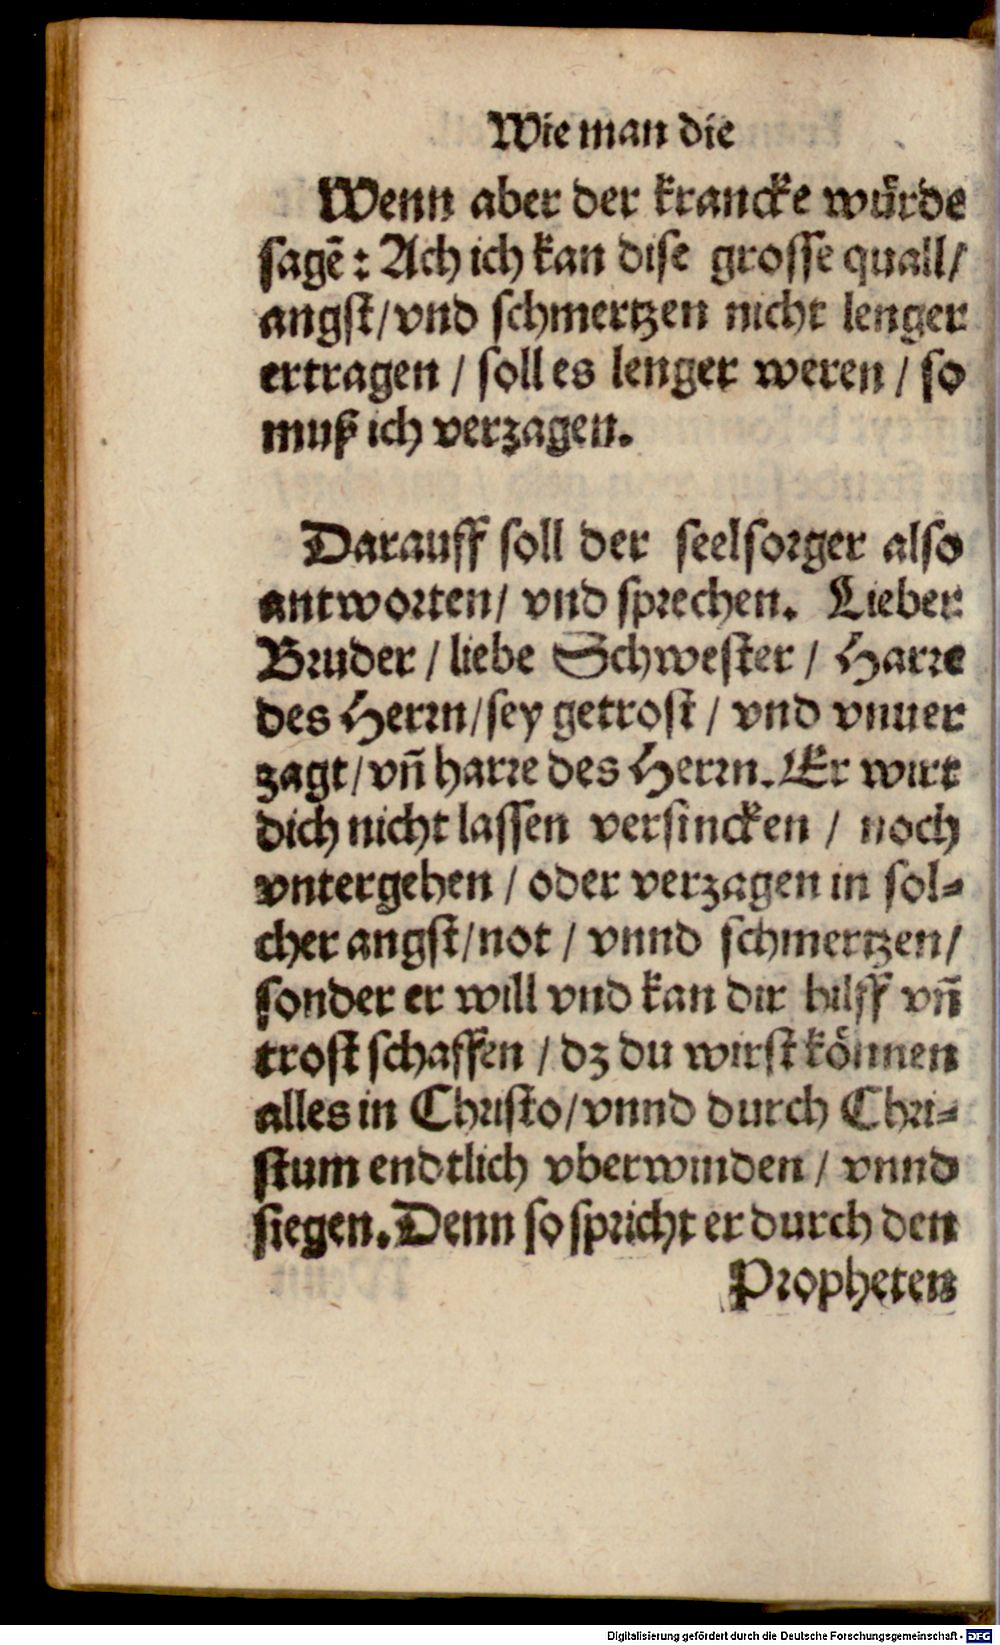 Wie man die
Wenn aber der krancke würde
sagē: Ach ich kan dise grosse quall/
angst/vnd schmertzen nicht lenger
ertragen / soll es lenger weren / so
muß ich verzagen.
Darauff soll der seelsorger also
antworten/ vnd sprechen. Lieber
Bruder / liebe Schwester / Harre
des Herrn/sey getrost / vnd vnuer
zagt/vñ harre des Herrn. Er wirt
dich nicht lassen versincken / noch
vntergehen / oder verzagen in sol-
cher angst/not / vnnd schmertzen/
sonder er will vnd kan dir hilff vñ
trost schaffen / dz du wirst können
alles in Christo/vnnd durch Chri-
stum endtlich vberwinden / vnnd
siegen. Denn so spricht er durch den
Propheten
Digitalisierung gefördert durch die Deutsche Forschungsgemeinschaft - DFG